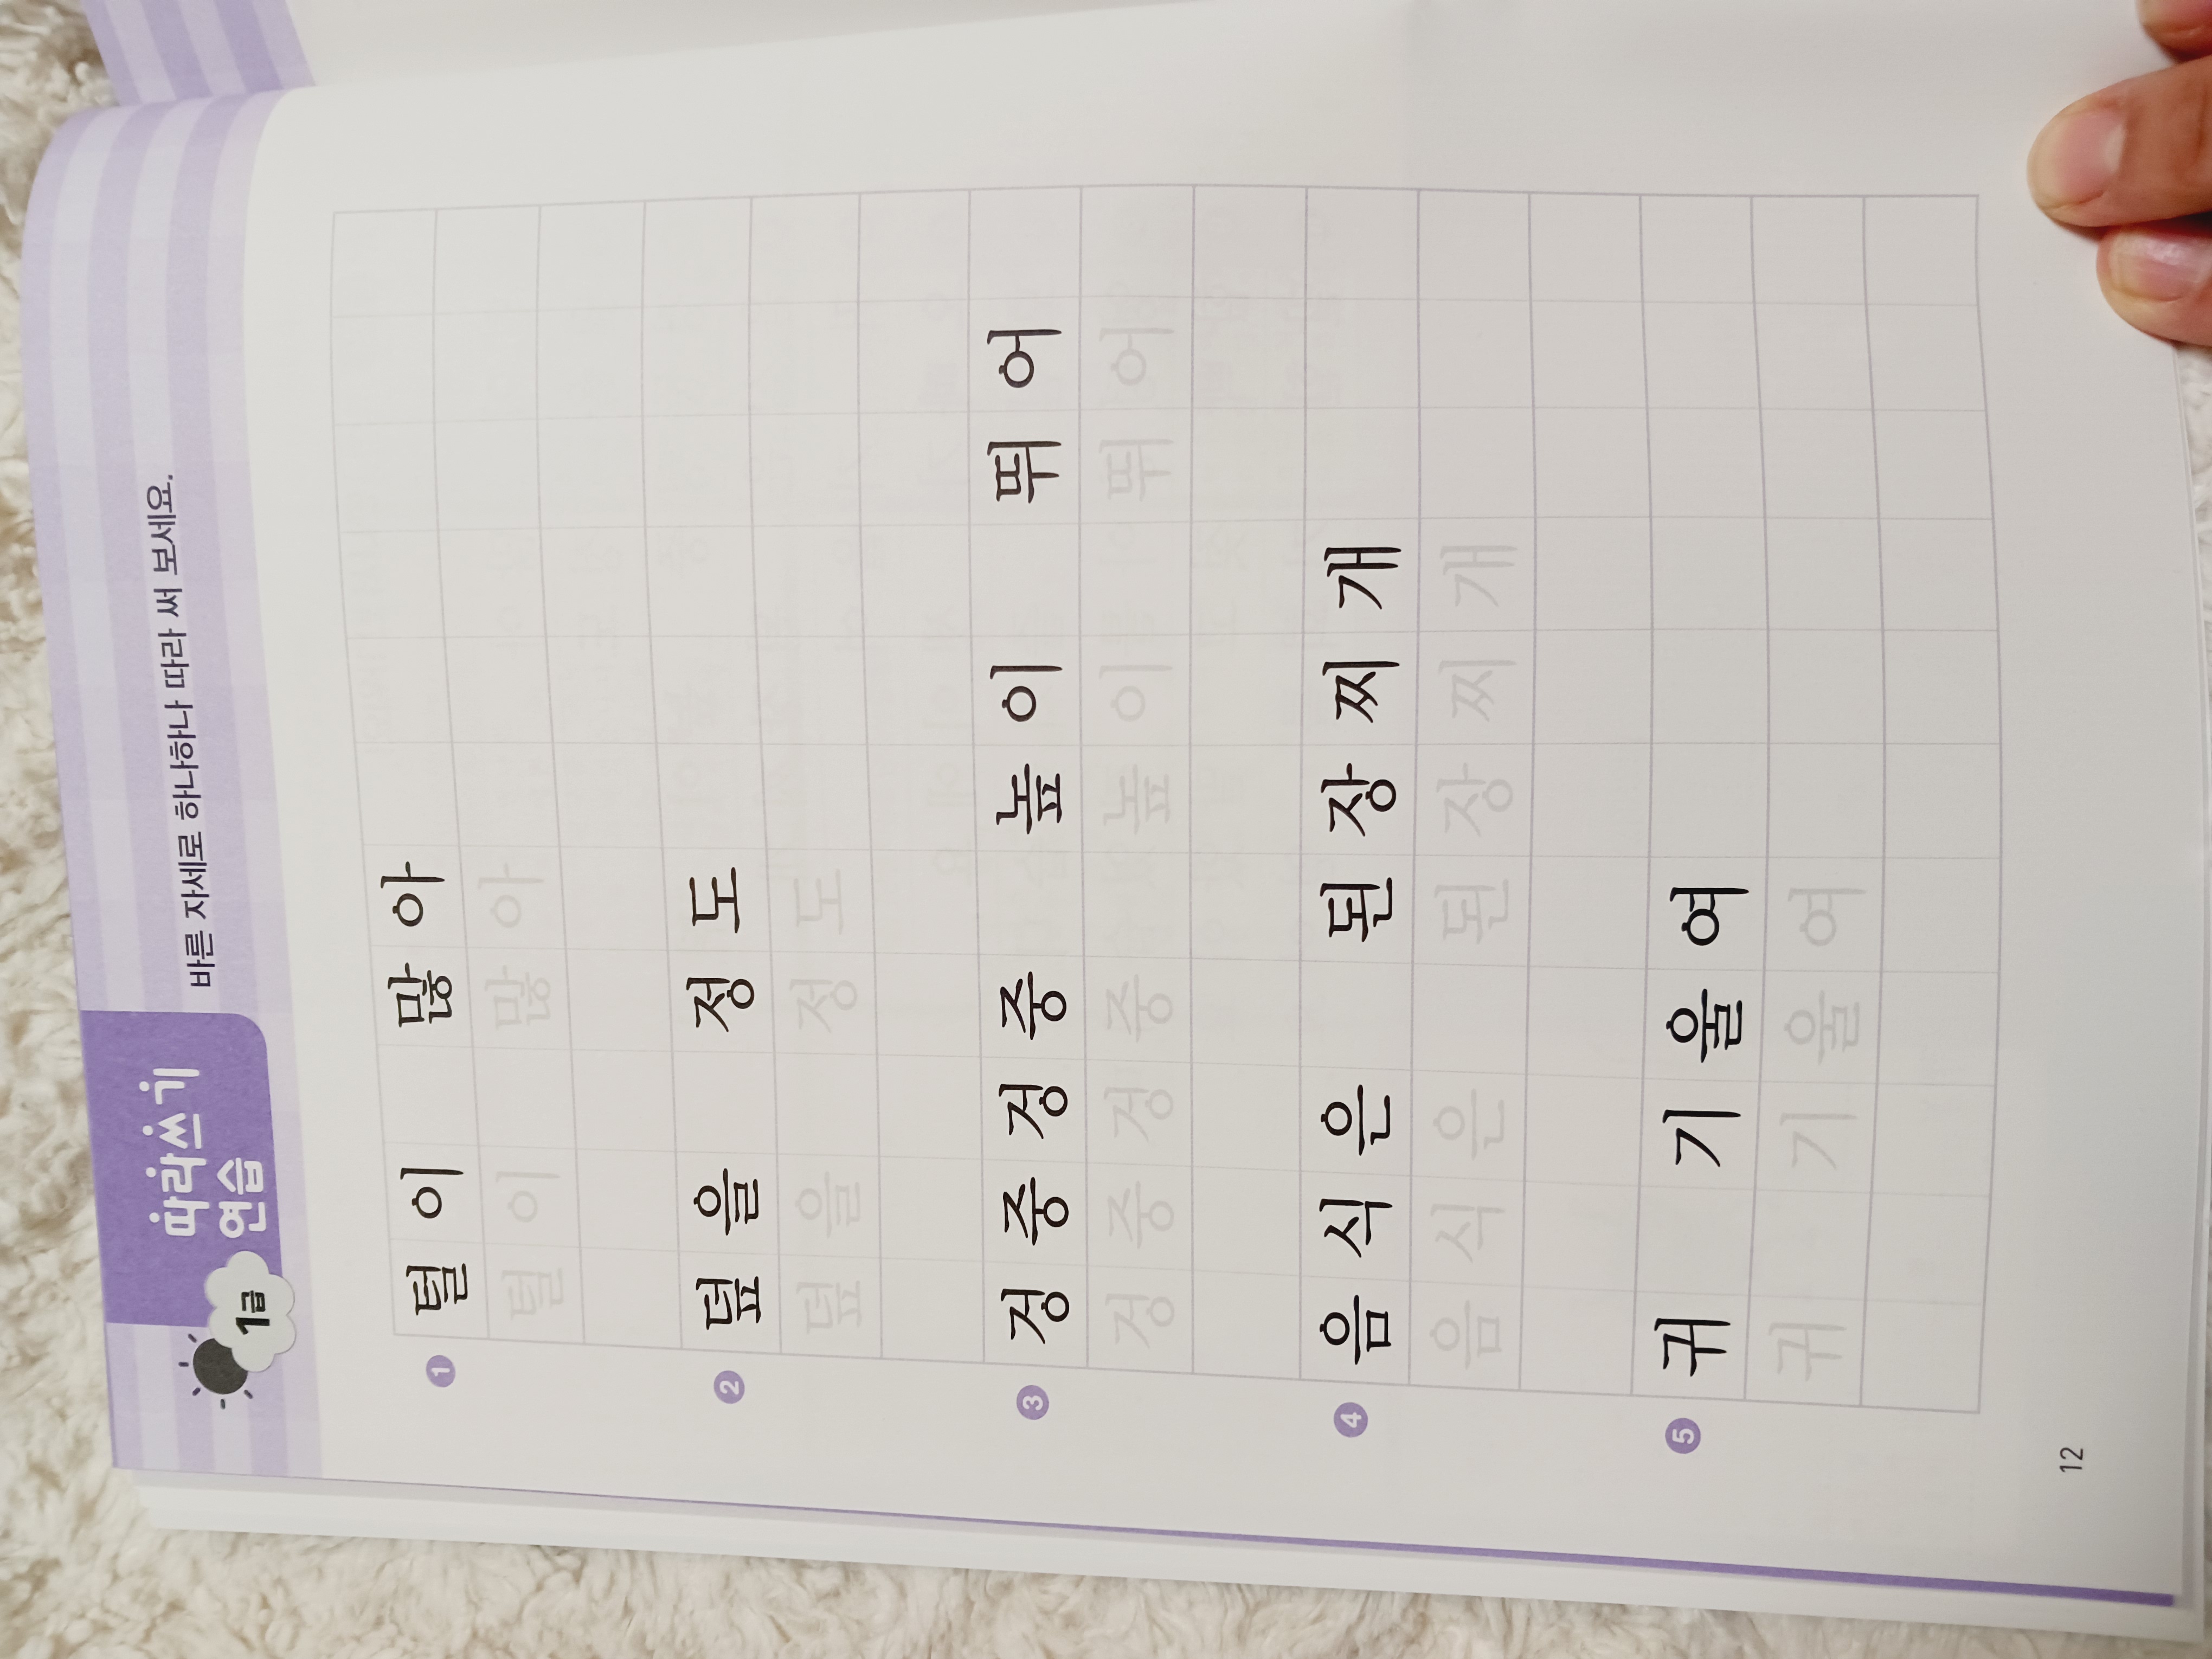 1급
따라쓰기
연습
바른 자세로 하나하나 따라 써 보세요.
1 털이 많아
털이 많아
2 덮을 정도
덮을 정도
3 겅중겅중 높이 뛰어
겅중겅중 높이 뛰어
4 음식은 된장찌개
음식은 된장찌개
5 귀 기울여
귀 기울여
12